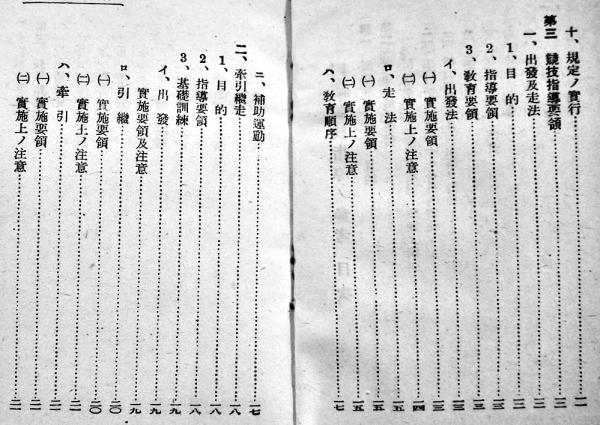 十、規定ノ實行
第三 競技指導要領
一、出發及走法
1、目的
2、指導要領
3、教育要領
イ、出發法
㈠ 實施要領
㈡ 實施上ノ注意……一四
ロ、走法……一五
㈠ 實施要領……一五
㈡ 實施上ノ注意……一五
ハ、教育順序……一七
ニ、補助運動……一七
二、牽引繼走……一八
1、目的……一八
2、指導要領……一八
3、基礎訓練……一九
イ、出發……一九
實施要領及注意……一九
ロ、引繼……二〇
㈠ 實施要領……二〇
㈡ 實施上ノ注意
ハ、牽引
㈠ 實施要領
㈡ 實施上ノ注意